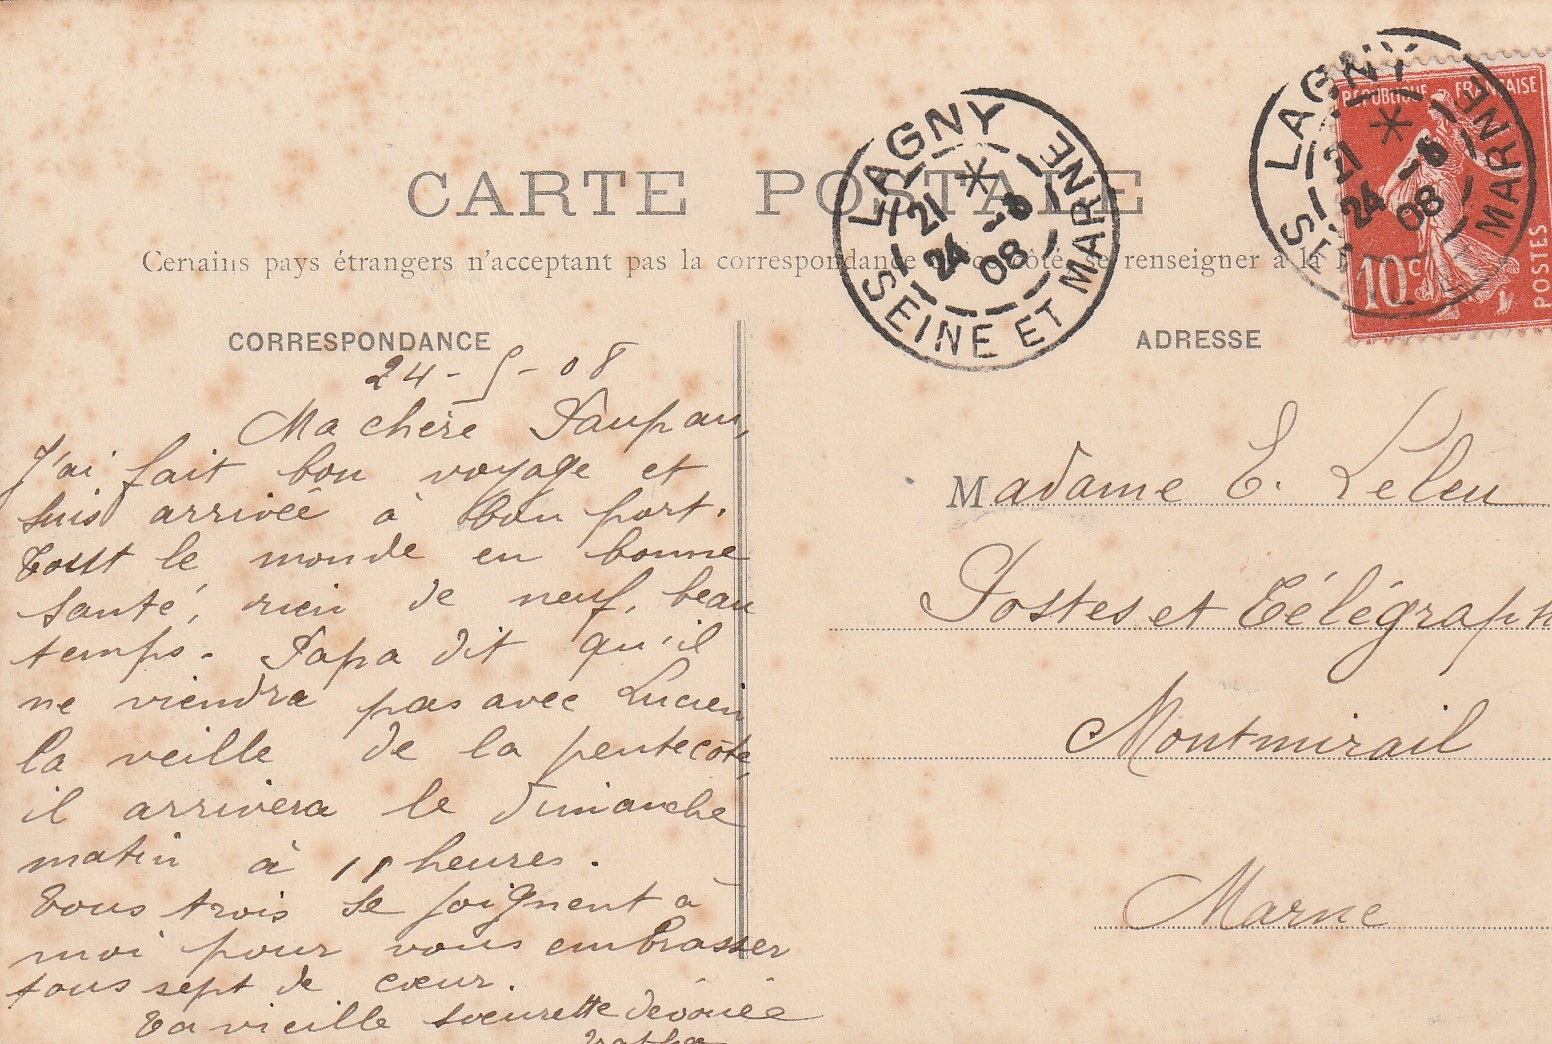 CARTE POSTALE
Certains pays étrangers n'acceptant pas la correspondance de ce côté, se renseigner à la
CORRESPONDANCE
24-5-08
Ma chère Paupau,
J'ai fait bon voyage et
suis arrivée à bon port.
Tout le monde en bonne
santé, rien de neuf, beau
temps. Papa dit qu'il
ne viendra pas avec Lucien
la veille de la pentecôte,
il arrivera le dimanche
matin à 11 heures.
Tous trois se joignent à
moi pour vous embrasser
tous sept de cœur.
Ta vieille sœurette dévouée
ADRESSE
Madame E. Leleu
Postes et Télégraph
Montmirail
Marne
LAGNY
SEINE ET MARNE
21
24 -5
08
LAGNY
SEINE ET MARNE
21
24 -5
08
REPUBLIQUE FRANÇAISE
10c
POSTES